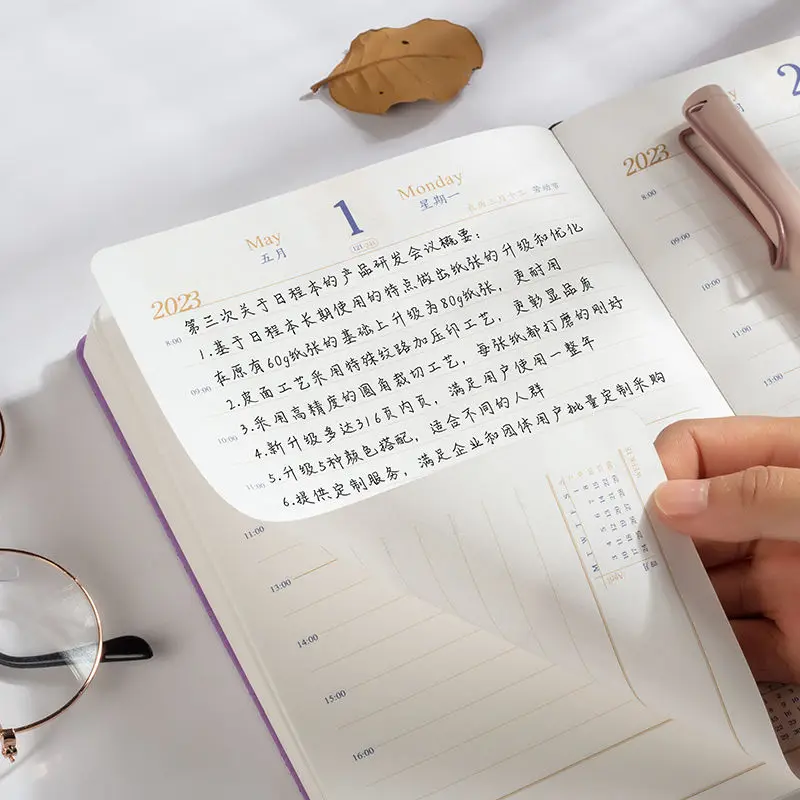 May
五月
1
121-244
Monday
星期一
农历三月十二 劳动节
2023
第三次关于日程本的产品研发会议概要：
1.基于日程本长期使用的特点做出纸张的升级和优化
在原有60g纸张的基础上升级为80g纸张，更耐用
2.皮面工艺采用特殊纹路加压印工艺，更彰显品质
3.采用高精度的圆角裁切工艺，每张纸都打磨的刚好
4.新升级多达316页内页，满足用户使用一整年
5.升级5种颜色搭配，适合不同的人群
6.提供定制服务，满足企业和团体用户批量定制采购
8:00
09:00
10:00
11:00
11:00
13:00
14:00
15:00
16:00
May
2
2023
8:00
09:00
10:00
11:00
13:00